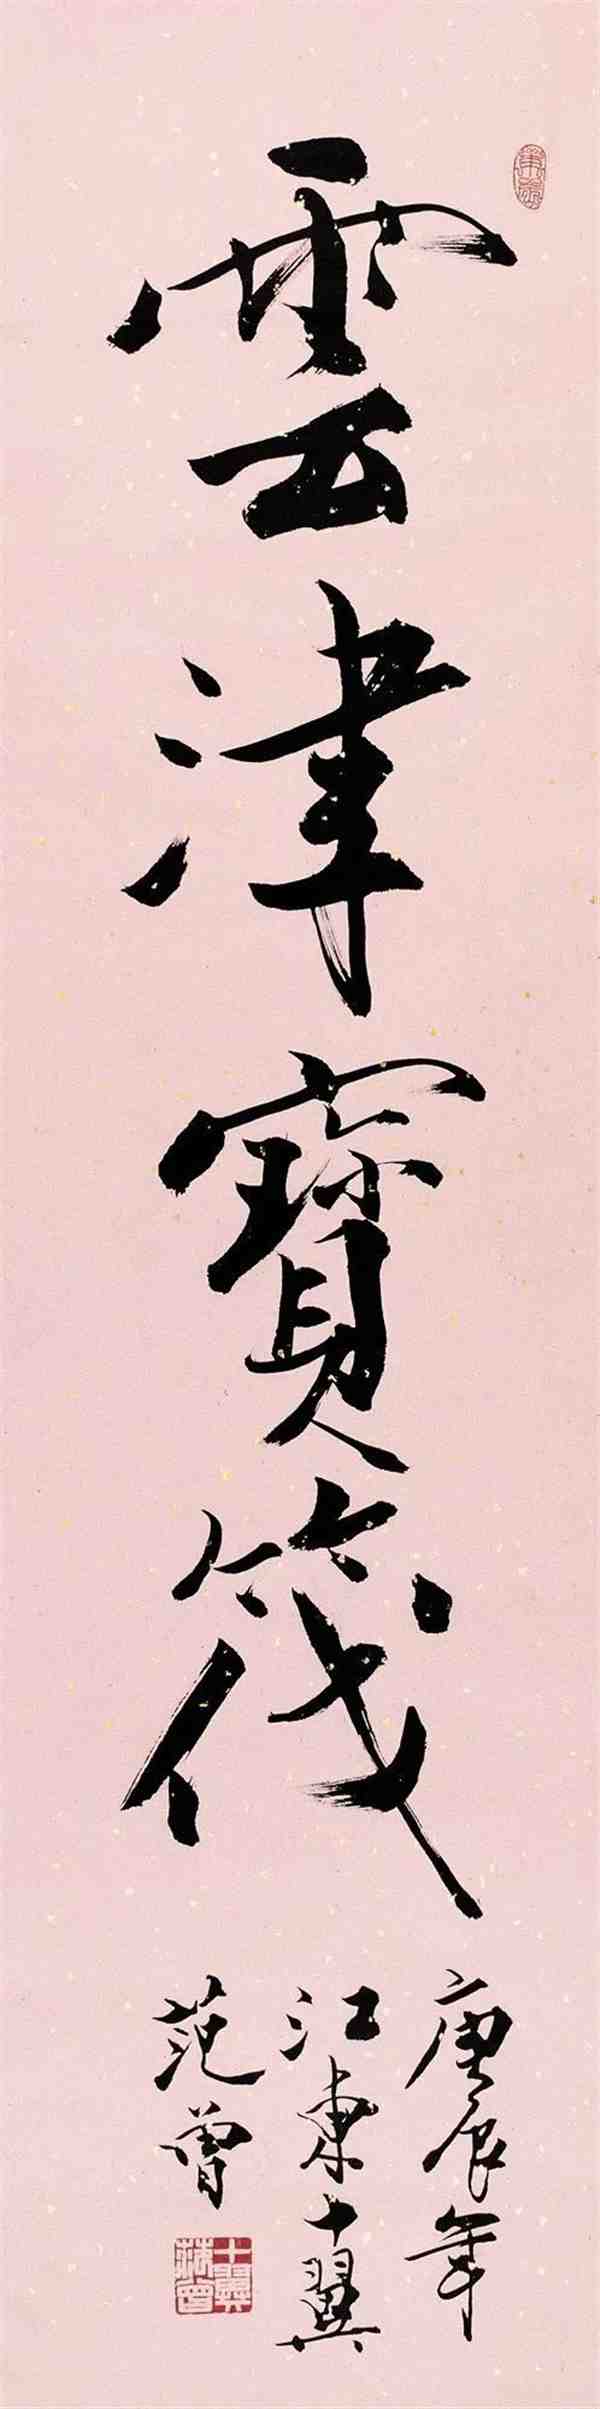 雲津寶筏
庚辰年
江東十翼
范曾
十翼
范曾